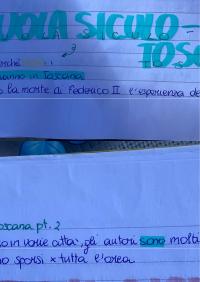 UOLA SICULO-
TOSC
perché
anno in Toscana
o la morte di Federico II l'esperienza de
oscana pt. 2
o in varie città, gli autori sono molta
no sparsi x tutta l'area